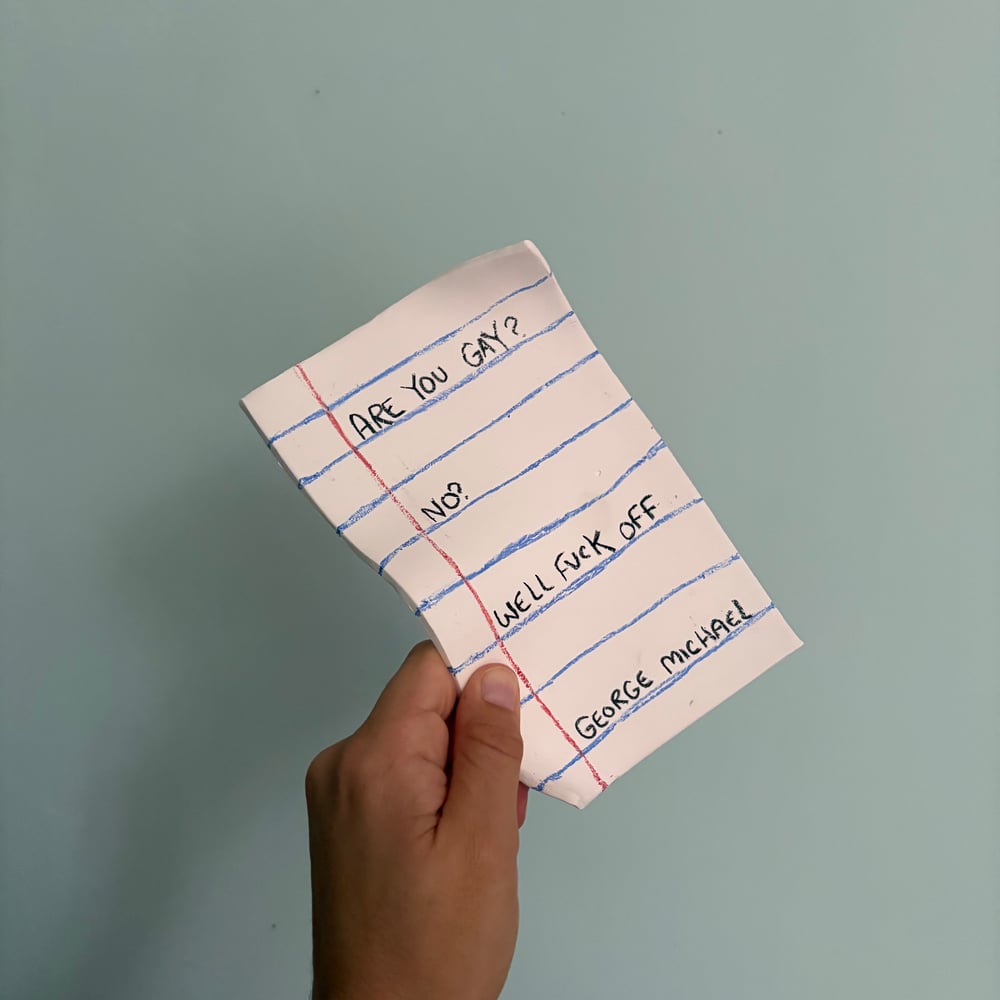 ARE YOU GAY?
NO?
WELL FUCK OFF
GEORGE MICHAEL